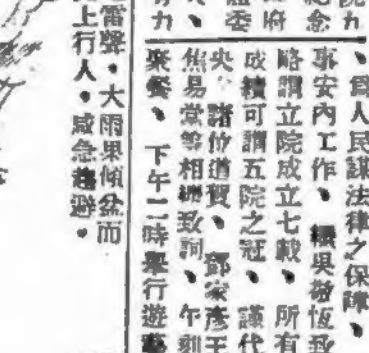 院九
紀念
、為人民謀法律之保障、
事安內工作、繼吳敬恆致
略謂立院成立七載、所有
成績可謂五院之冠、謹代
央、諸位道賀、鄧家彥王
焦易堂等相繼致詞、午刻
聚餐、下午二時舉行遊藝
雷聲。大雨果傾盆而
上行人。咸急趨避。